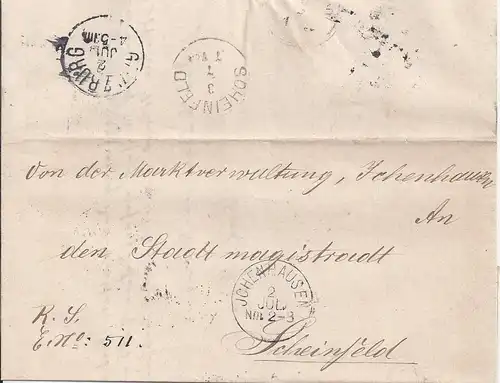 GÜNZBURG
2
JUL
4-5 NM
SCHEINFELD
3
7
Von der Marktverwaltung, Ichenhausen
An
den Stadtmagistradt
JCHENHAUSEN
2
JUL
NM 2-3
K. S.
E. No: 511.
Scheinfeld